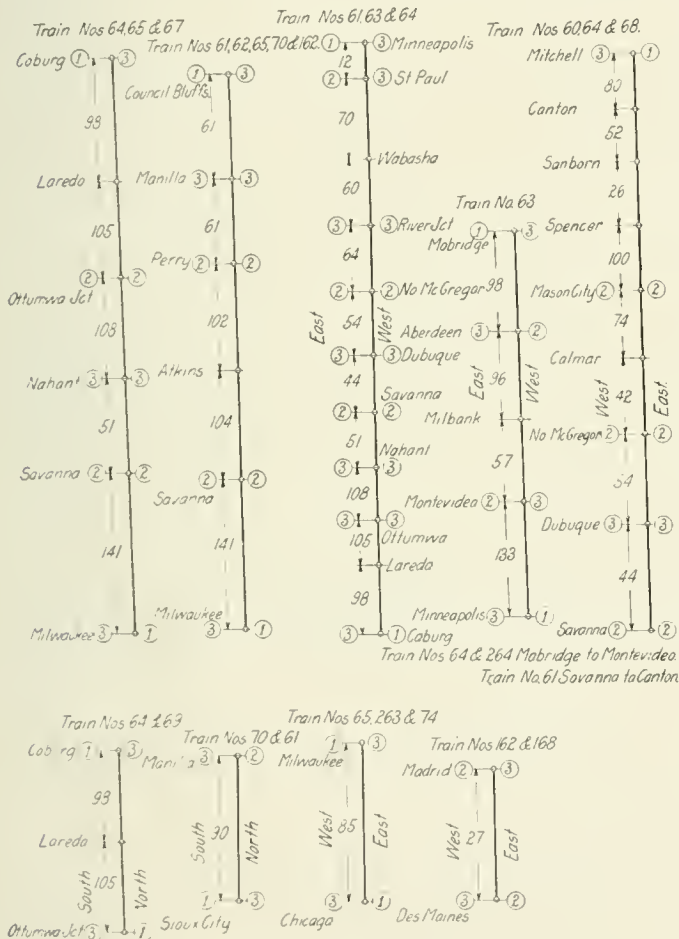 Train Nos 64,65 & 67
Coburg ① ③
98
Laredo
105
② ②
Ottumwa Jct
108
Nahant ③ ③
51
Savanna ② ②
141
Milwaukee ③ ①
Train Nos 61,62,65,70 & 162.
① ③
Council Bluffs
61
Manilla ③ ③
61
Perry ② ②
102
Atkins
104
② ②
Savanna
141
Milwaukee
③ ①
Train Nos 61,63 & 64
① ③ Minneapolis
12
② ③ St Paul
70
Wabasha
60
③ ③ River Jct
64
② ② No McGregor
East 54 West
③ ③ Dubuque
44
Savanna
② ②
51
Nahant
③ ③
108
③ ③
Ottumwa
105
Laredo
98
③ ① Coburg
Train No. 63
① ③
Mobridge
98
Aberdeen ③ ②
East 96 West
Milbank
57
Montevideo ② ③
133
Minneapolis ③ ①
Train Nos 60,64 & 68.
Mitchell ③ ①
80
Canton
52
Sanborn
26
Spencer
100
Mason City ② ②
74
Calmar
West 42 East.
No McGregor ② ②
54
Dubuque ③ ③
44
Savanna ② ②
Train Nos 64 & 264 Mobridge to Montevideo.
Train No. 61 Savanna to Canton
Train Nos 64 & 69
Coburg ① ③
98
Laredo
South 105 North
Ottumwa Jct ③ 1
Train Nos 70 & 61
Manilla ③ ②
South 90 North
① ③
Sioux City
Train Nos 65,263 & 74
① ③
Milwaukee
West 85 East
③ ①
Chicago
Train Nos 162 & 168
Madrid ② ③
West 27 East
③ ②
Des Maines